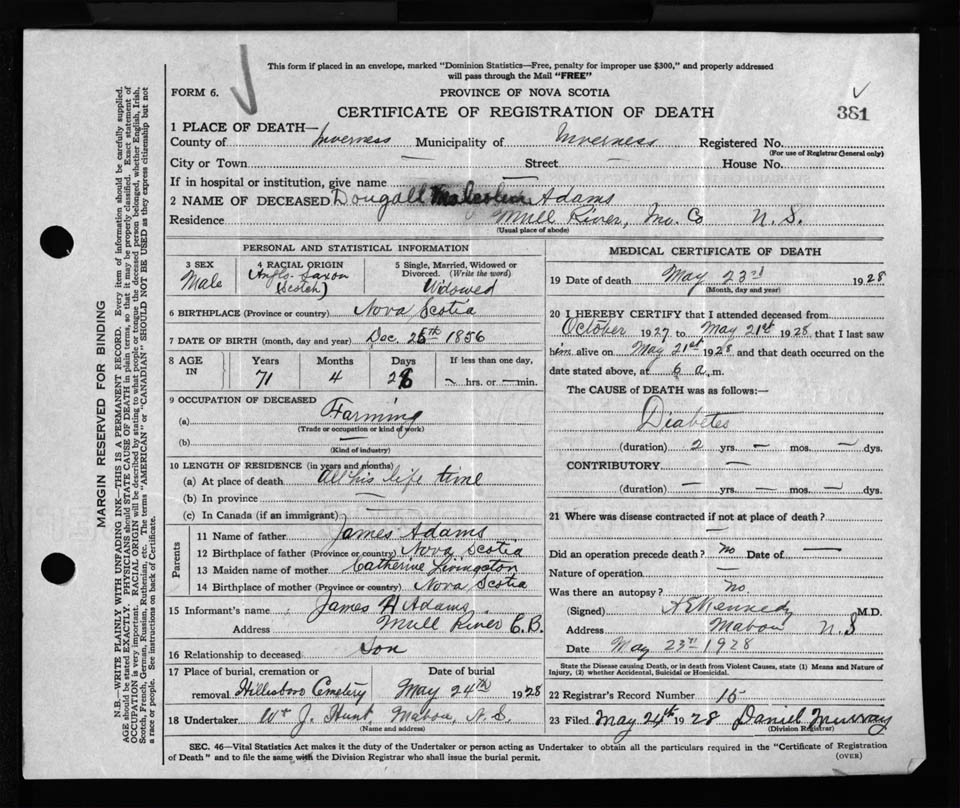 This form if placed in an envelope, marked "Dominion Statistics—Free, penalty for improper use $300," and properly addressed
will pass through the Mail "FREE"
FORM 6. PROVINCE OF NOVA SCOTIA
CERTIFICATE OF REGISTRATION OF DEATH 381
1 PLACE OF DEATH—
County of Inverness Municipality of Inverness Registered No.
(For use of Registrar General only)
City or Town — Street — House No.
If in hospital or institution, give name —
2 NAME OF DECEASED Dougall Malcolm Adams
Residence Mull River, Inv. Co N. S.
(Usual place of abode)
PERSONAL AND STATISTICAL INFORMATION
3 SEX Male
4 RACIAL ORIGIN Anglo-Saxon (Scotch)
5 Single, Married, Widowed or Divorced. (Write the word) Widowed
6 BIRTHPLACE (Province or country) Nova Scotia
7 DATE OF BIRTH (month, day and year) Dec. 25th 1856
8 AGE IN Years Months Days If less than one day,
71 4 28 — hrs. or — min.
9 OCCUPATION OF DECEASED
(a) Farming
(Trade or occupation or kind of work)
(b) —
(Kind of industry)
10 LENGTH OF RESIDENCE (in years and months)
(a) At place of death All his life time
(b) In province —
(c) In Canada (if an immigrant) —
Parents
11 Name of father James Adams
12 Birthplace of father (Province or country) Nova Scotia
13 Maiden name of mother Catherine Livingston
14 Birthplace of mother (Province or country) Nova Scotia
15 Informant's name James H Adams
Address Mull River C.B.
16 Relationship to deceased Son
17 Place of burial, cremation or removal Hillisboro Cemetery Date of burial May 24th 1928
18 Undertaker Wm J. Hunt, Mabou, N.S.
(Name and address)
MEDICAL CERTIFICATE OF DEATH
19 Date of death May 23rd 1928
(Month, day and year)
20 I HEREBY CERTIFY that I attended deceased from
October 1927 to May 21st 1928, that I last saw
him alive on May 21st 1928 and that death occurred on the
date stated above, at 6 a. m.
The CAUSE of DEATH was as follows:—
Diabetes
(duration) 2 yrs. — mos. — dys.
CONTRIBUTORY —
(duration) — yrs. — mos. — dys.
21 Where was disease contracted if not at place of death?
—
Did an operation precede death? No Date of —
Nature of operation —
Was there an autopsy? No.
(Signed) Kennedy M.D.
Address Mabou N.S
Date May 23rd 1928
State the Disease causing Death, or in death from Violent Causes, state (1) Means and Nature of
Injury, (2) whether Accidental, Suicidal or Homicidal.
22 Registrar's Record Number 15
23 Filed May 24th 1928 Daniel Murray
(Division Registrar)
SEC. 46—Vital Statistics Act makes it the duty of the Undertaker or person acting as Undertaker to obtain all the particulars required in the "Certificate of Registration
of Death" and to file the same with the Division Registrar who shall issue the burial permit. (OVER)
MARGIN RESERVED FOR BINDING
N.B.—WRITE PLAINLY WITH UNFADING INK—THIS IS A PERMANENT RECORD. Every item of information should be carefully supplied.
AGE should be stated EXACTLY. PHYSICIANS should STATE CAUSE OF DEATH in plain terms, so that it may be properly classified. Exact statement of
OCCUPATION is very important. RACIAL ORIGIN will be described by stating to what people or tongue the deceased person belonged, whether English, Irish,
Scotch, French, German, Russian, Ruthenian, etc. The terms "AMERICAN" or "CANADIAN" SHOULD NOT BE USED as they express citizenship but not
a race or people. See instructions on back of Certificate.